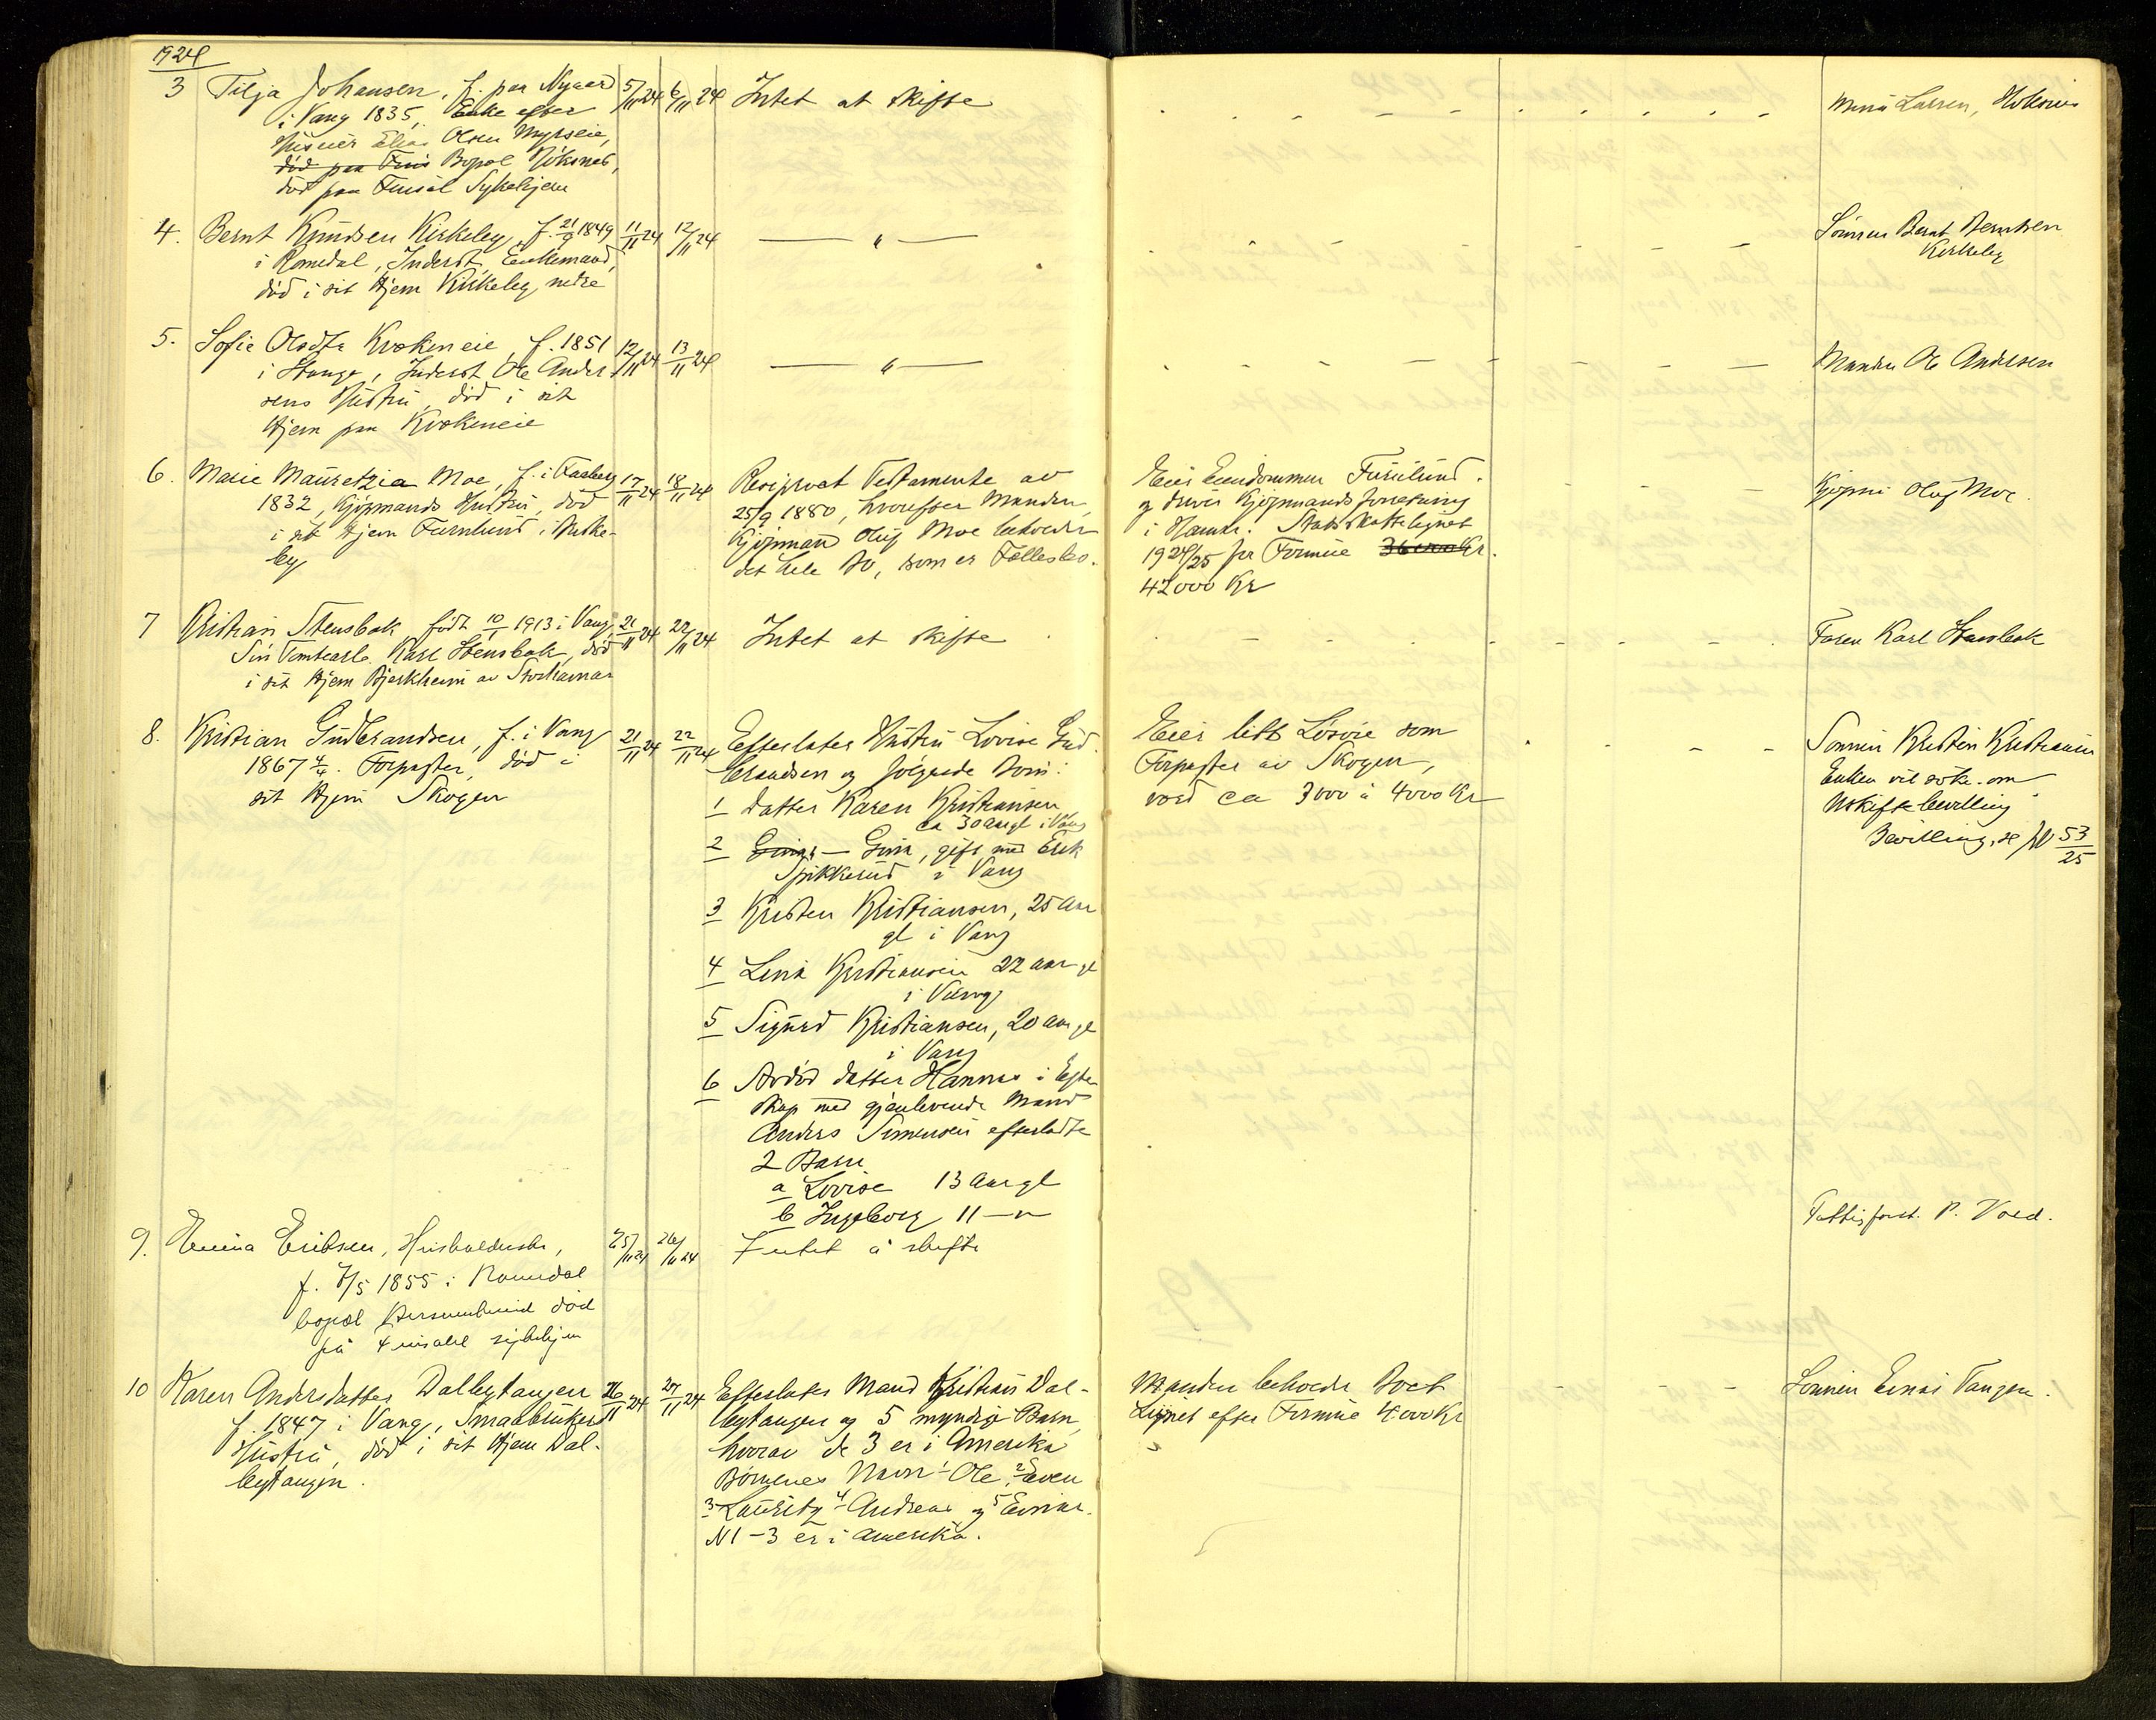 1924
3 Tilja Johansen, f. paa Nygaard 5/11 24 6/11 24 Intet at skifte Larsen,
i Vang 1835, Enke efter
Elias Olsen
død paa Bopæl
død paa Finsal Sykehjem
4. Bernt Knudsen Kirkeby, f. 21/9 1849 11/11 24 12/11 24 — „ — Sønnen Bernt Berntsen
i Romedal, Inderst, Enkemand, Kirkeby
død i sit Hjem Kirkeby nedre
5. Sofie Olsdtr Krokeneie, f. 1851 12/11 24 13/11 24 — „ — Manden Ole Andersen
i Stange, Inderst Ole Ander
sens Hustru, død i sit
Hjem paa Krokeneie
6. Marie Mauretzia Moe, f. i Faaberg 17/11 24 18/11 24 Resiprost Testamente av Eier Eiendommen Furulund Kjøpm. Oluf Moe.
1832, Kjøpmands Hustru, død 25/9 1880, hvorefter Manden, og driver Kjøpmandsforretning
i sit Hjem Furulund i Kjøpmand Oluf Moe beholder i Hamar. Statsskattelignet
by det hele Bo, som er Fællesbo. 1924/25 for Formue 36000 Kr.
42000 Kr
7 Kristian Stensbak født 10/1 1913 i Vang, 21/11 24 22/11 24 Intet at skifte Faren Karl Stensbak
Søn Tomtearb. Karl Stensbak, død
i sit Hjem Bjerkheim av Storhamar
8. Kristian Gudbrandsen, f. i Vang 21/11 24 22/11 24 Efterlater Hustru Lovise Gud- Eier litt Løsøre som Sønnen Kristen Kristiansen
1867 4/4. Forpagter, død i brandsen og følgende Barn: Forpagter av Skogen, Enken vil søke om
sit Hjem Skogen 1 Datter Karen Kristiansen værd ca 3000 à 4000 Kr Uskiftebevilling
ca 30 aar gl i Vang Bevilling, se 53/25
2 — Gina, gift med Erik
Spikkerud i Vang
3 Kristen Kristiansen, 25 Aar
gl i Vang
4 Lina Kristiansen 22 aar gl
i Vang
5 Sigurd Kristiansen, 20 aar gl
i Vang
6 Avdød datter Hanna i Egte
skap med gjenlevende Mand
Anders Simensen efterlatte
2 Barn
a Lovise 13 Aar gl
b Ingeborg 11 — „ Fattigforst. P. Vold.
9. Emma Eriksen, Husholderske, 25/11 24 26/11 24 Intet å skifte
f. 7/5 1855 i Romedal
bopæl død
på Finsahl sykehjem
10 Karen Andersdatter Dalbytangen 26/11 24 27/11 24 Efterlater Mand Kristian Dal- Manden beholder Boet Sønnen Einar Tangen.
f. 1847 i Vang, Smaabrukers bytangen og 5 myndige Barn, Lignet efter Formue 4000 Kr
Hustru, død i sit Hjem Dal- hvorav de 3 er i Amerika
bytangen. Børnenes Navn 1 Ole, 2 Even
3 Lauritz 4 Andreas og 5 Einar.
N 1-3 er i Amerika.